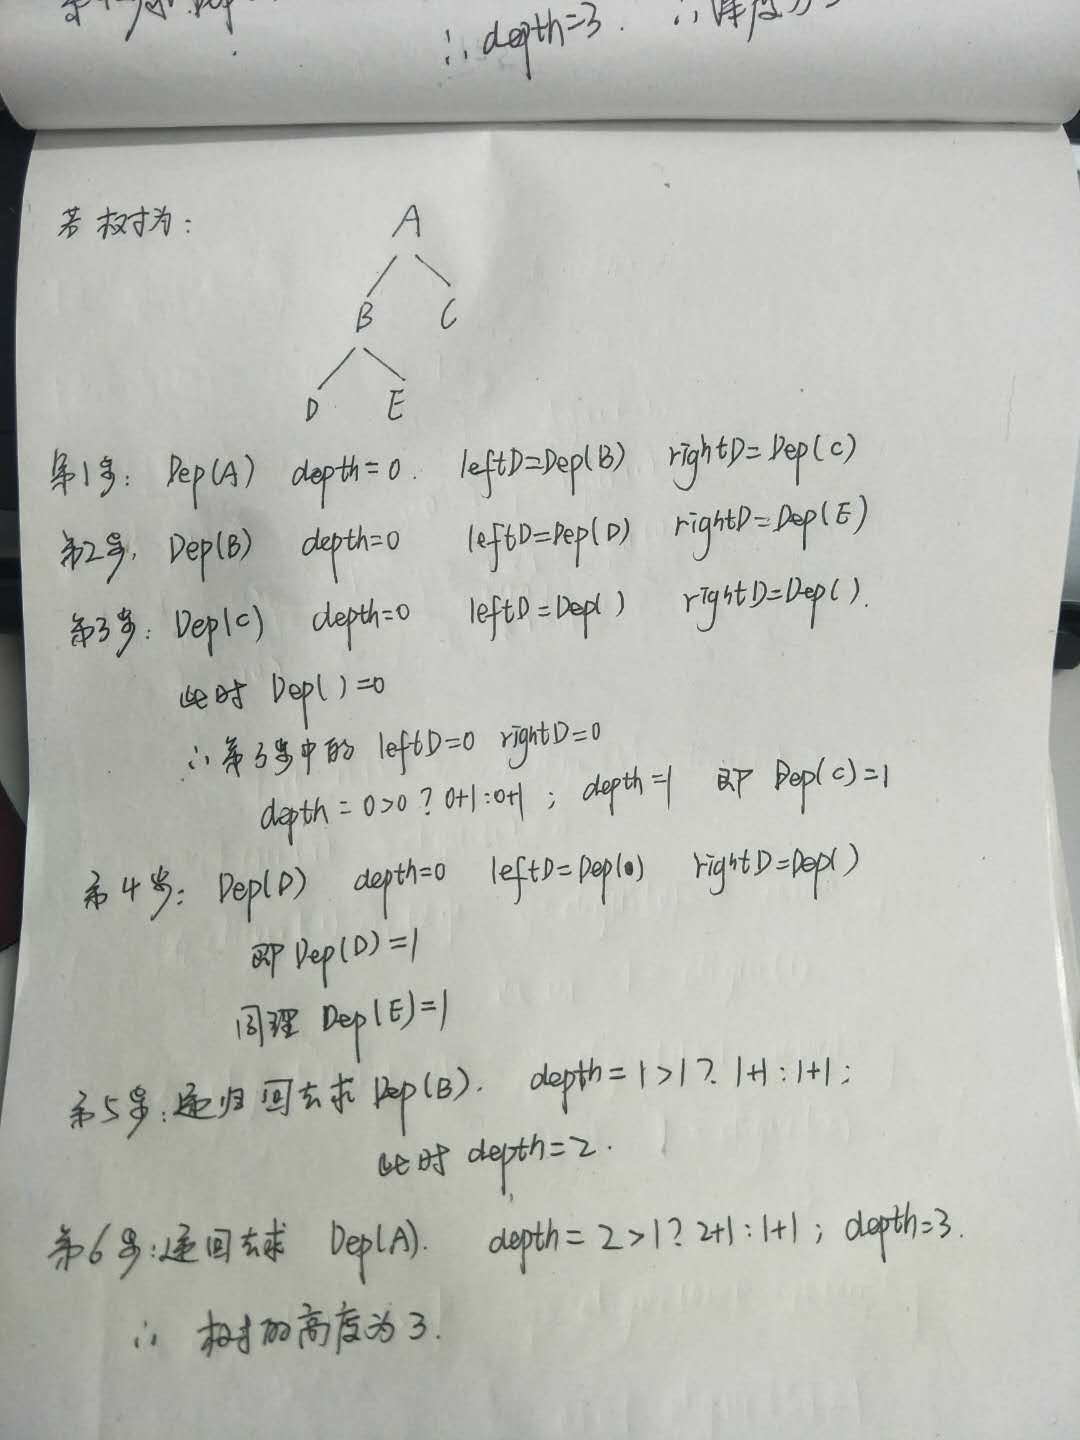 ∴ depth=3. ∴深度为3
若树为:
A
B C
D E
第1步: Dep(A) depth=0. leftD=Dep(B) rightD=Dep(C)
第2步, Dep(B) depth=0 leftD=Dep(D) rightD=Dep(E)
第3步: Dep(C) depth=0 leftD=Dep( ) rightD=Dep( ).
此时 Dep( )=0
∴第3步中的 leftD=0 rightD=0
depth = 0>0? 0+1:0+1 ; depth=1 即 Dep(C)=1
第4步: Dep(D) depth=0 leftD=Dep( ) rightD=Dep( )
即 Dep(D)=1
同理 Dep(E)=1
第5步:递归回去求 Dep(B). depth=1>1? 1+1:1+1;
此时 depth=2.
第6步:递回去求 Dep(A). depth= 2>1? 2+1:1+1; depth=3.
∴ 树的高度为3.